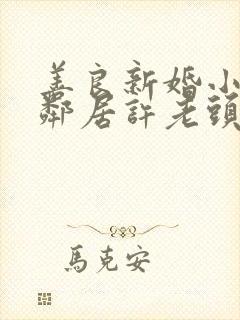 善良新婚小
鄰居許老頭
馬克安